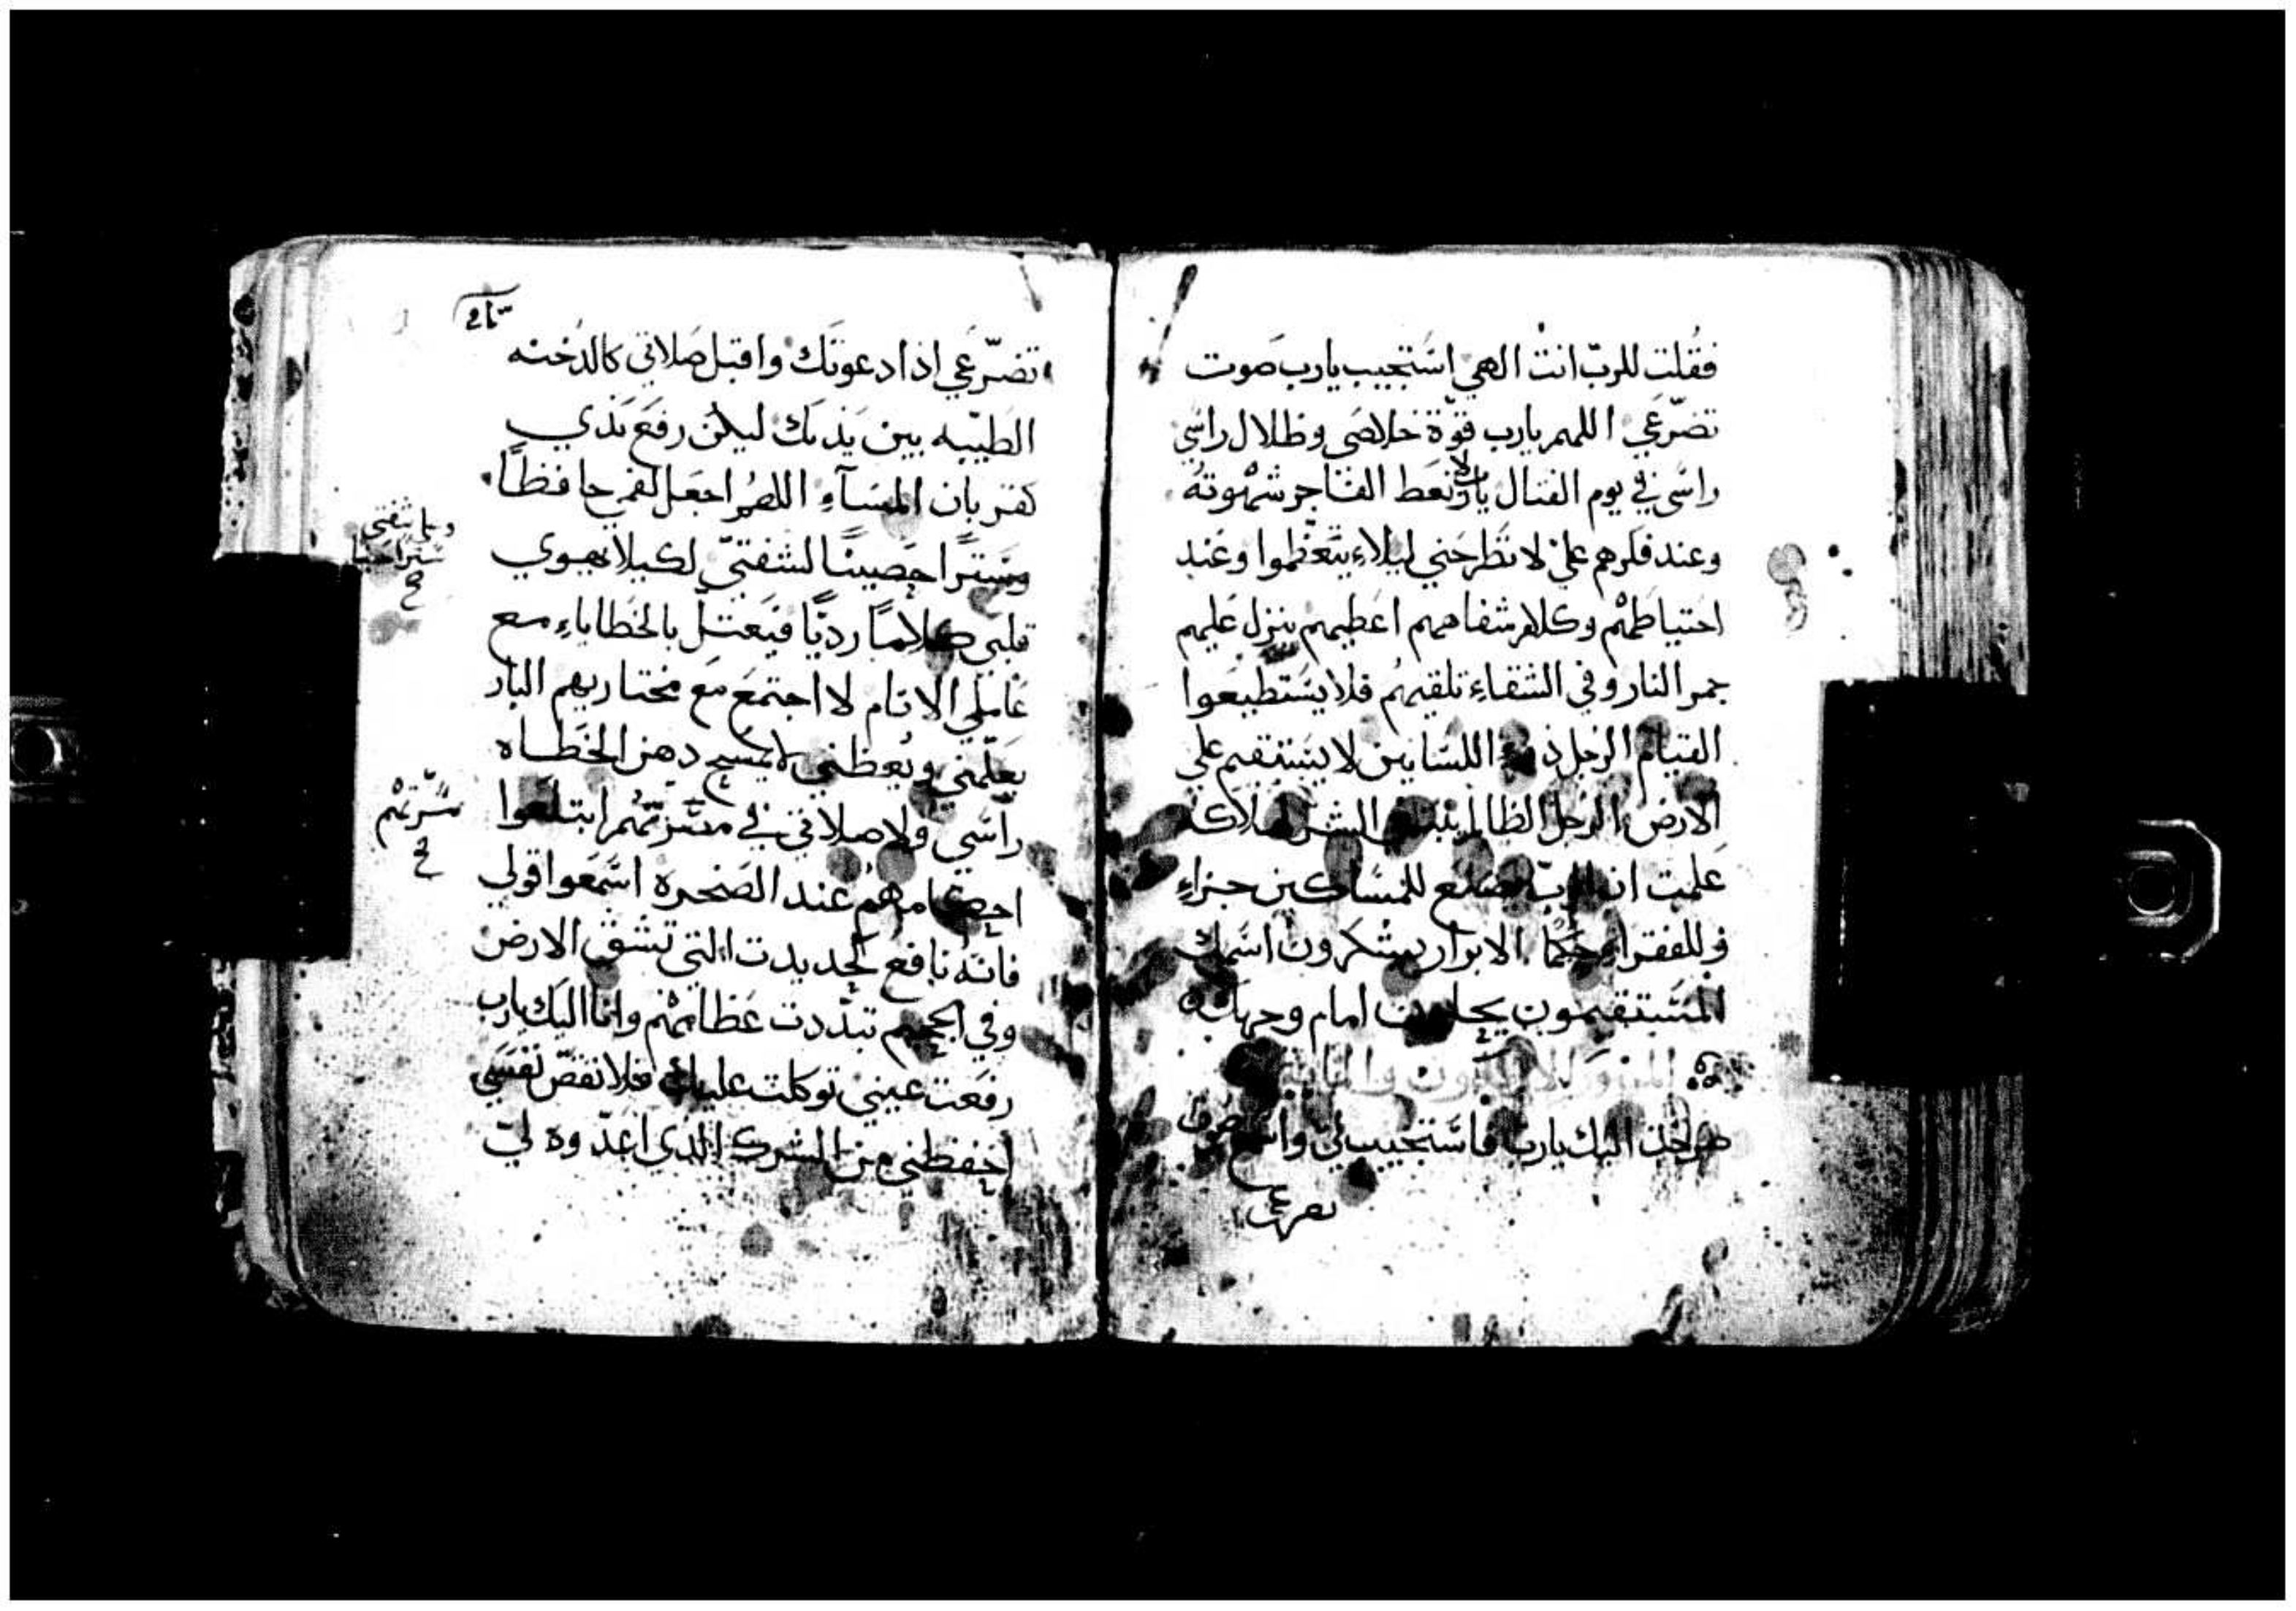 فقلت للربّ انت الهي استجيب يارب صوت
تضرّعي اللهم يارب قوّة خلاصي وظلال راسي
راسي في يوم القتال يارب لا تعط الفاجر شهوته
وعند فكرهم عليّ لا تطرحني ليلاء يتعظموا وعند
احتياطهم وكلام شفاههم اعطيهم ينزل عليهم
جمر النار وفي الشقاء تلقيهم فلا يستطيعوا
القيام الرجل ذو اللسانين لا يستقيم علي
الارض الرجل الظالم الشر
علمت ان الربّ يصنع للمساكين جزاء
وللفقراء حكما الابرار يشكرون اسمك
المستقيمون يحلون امام وجهك
المزمور والمايه
صرخت اليك يارب فاستجيب لي واسمع صوت
تضرعي
تضرّعي اذا دعوتك واقبل صلاتي كالدخنه
الطيّبه بين يديك ليكن رفع يدي
كقربان المسآء اللهم اجعل لفمي حافظًا
وسترًا حصينًا لشفتيّ لكيلا يهوي
قلبي كلامًا رديًّا فيعتلّ بالخطاياء مع
عاملي الاثام لا اجتمع مع مختاريهم البار
يعلّمني ويعظني لا يمسح دهن الخطاه
راسي ولا صلاتي في مسرّتهم ابتلعوا
عند الصخره اسمعوا قولي
فانه نافع التي تشق الارض
وفي الجحيم تبدّدت عظامهم وانا اليك يارب
رفعت عيني توكلت عليك فلا تفض نفسي
احفظني من الشرك الذي اعدّوه لي
سترا حصينا
ح
مسرّتهم
ح